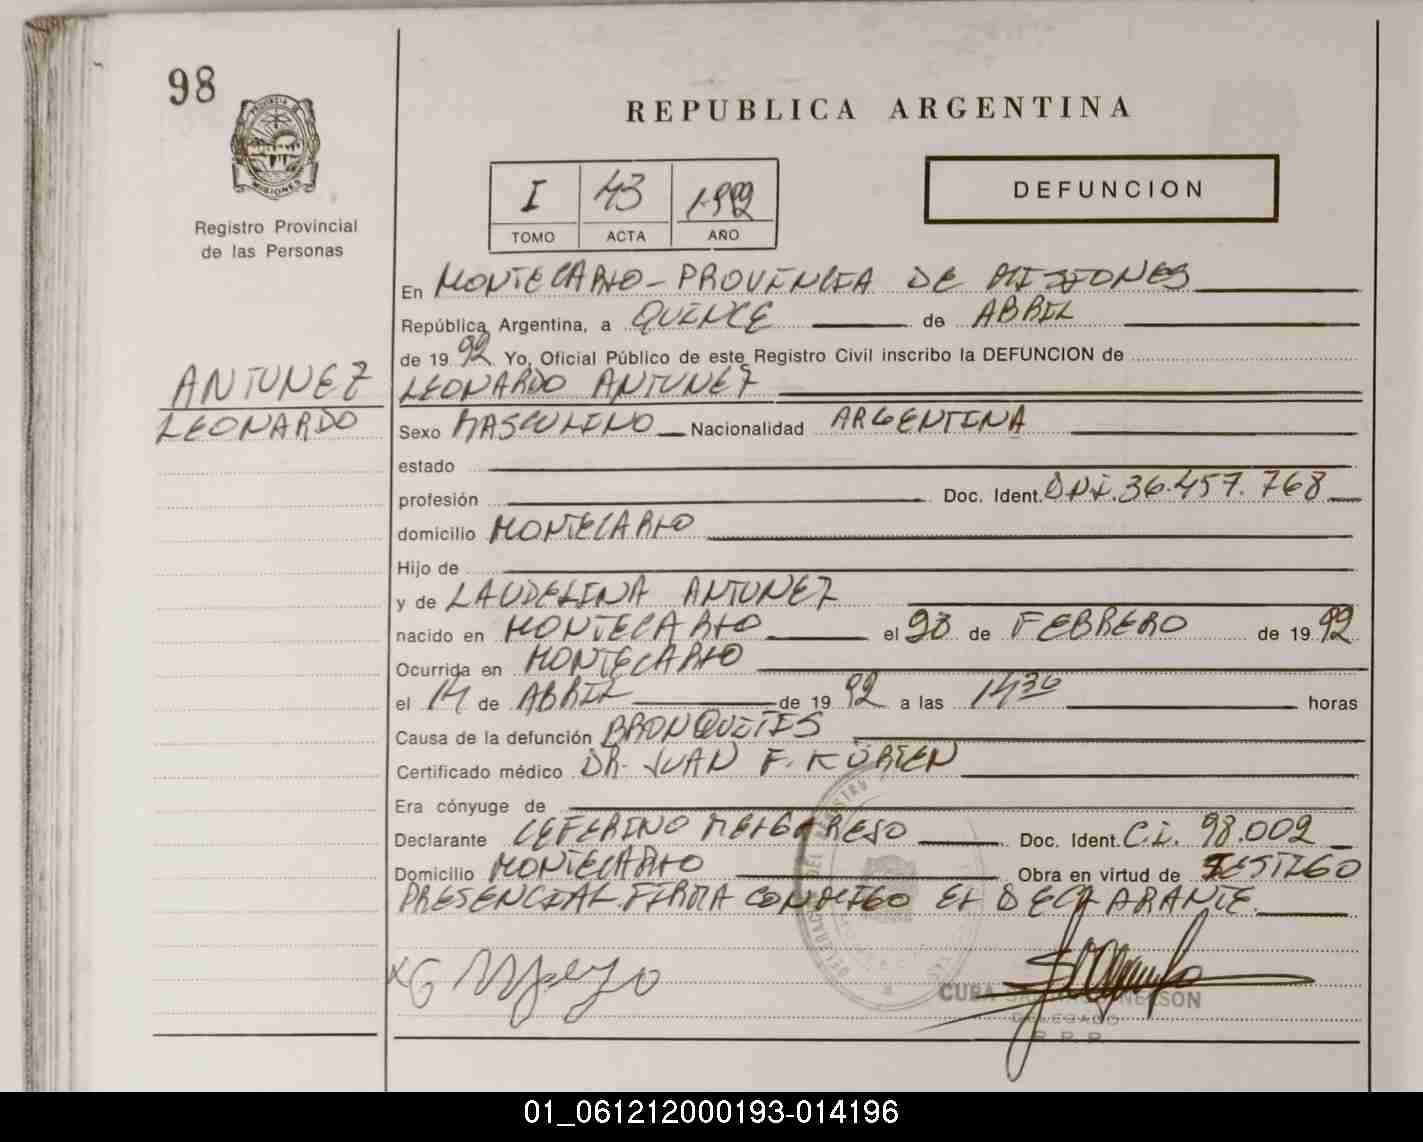 98
PROVINCIA DE
MISIONES
Registro Provincial
de las Personas
REPUBLICA ARGENTINA
I 43 1992
TOMO ACTA AÑO
DEFUNCION
En MONTECARLO - PROVINCIA DE MISIONES
República Argentina, a QUINCE de ABRIL
de 1992 Yo, Oficial Público de este Registro Civil inscribo la DEFUNCION de
ANTUNEZ
LEONARDO ANTUNEZ
LEONARDO
Sexo MASCULINO Nacionalidad ARGENTINA
estado
profesión Doc. Ident. DNI. 36.457.768
domicilio MONTECARLO
Hijo de
y de LAUDELINA ANTUNEZ
nacido en MONTECARLO el de FEBRERO de 1992
Ocurrida en MONTECARLO
el 14 de ABRIL de 1992 a las 14 30 horas
Causa de la defunción BRONQUITIS
Certificado médico DR. JUAN F. KÜRTEN
Era cónyuge de
Declarante CEFERINO MELGAREJO Doc. Ident. C.I. 98.002
Domicilio MONTECARLO Obra en virtud de TESTIGO
PRESENCIAL FIRMA CONMIGO EL DECLARANTE
CUBA NELSON
DELEGADO
R.P.P
01_061212000193-014196